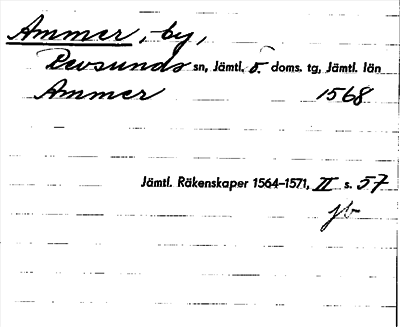 Ammer, by,
Revsunds sn, Jämtl. ö. doms. tg, Jämtl. län
Ammer 1568
Jämtl. Räkenskaper 1564–1571, II s. 57
jb